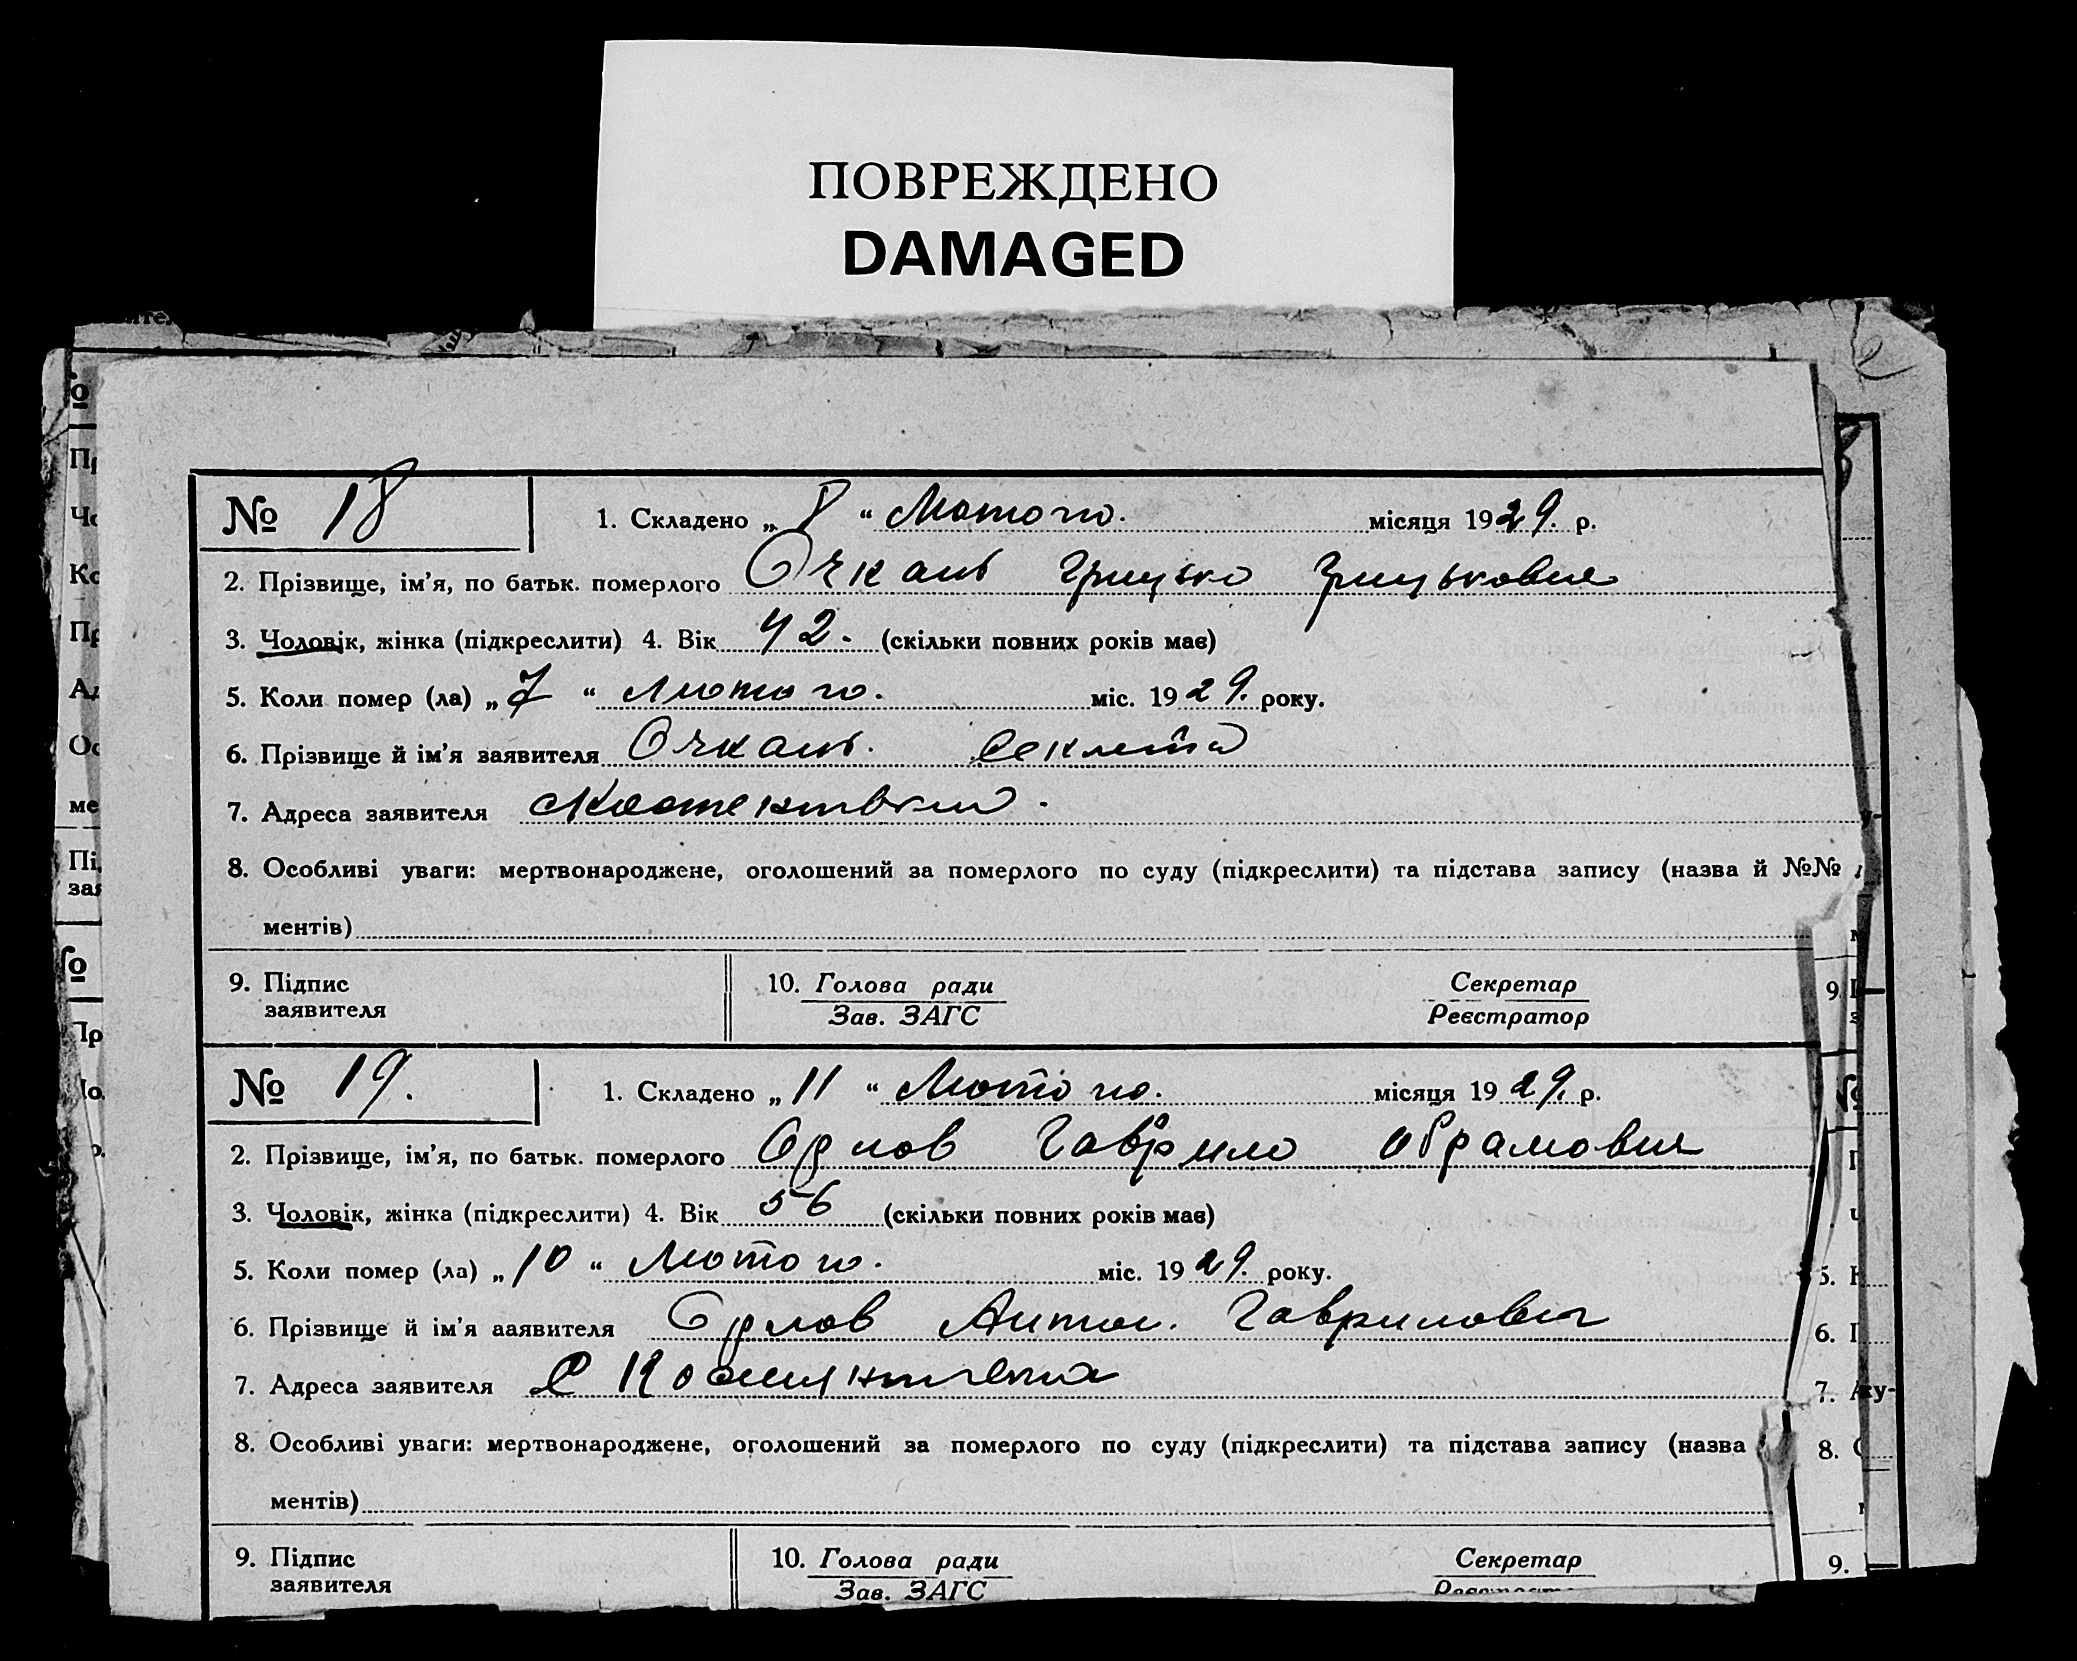 ПОВРЕЖДЕНО
DAMAGED
№ 18 1. Складено „ 8 “ Лютого. місяця 1929. р.
2. Прізвище, ім’я, по батьк. померлого Очкань Грицько Грицькович
3. Чоловік, жінка (підкреслити) 4. Вік 42. (скільки повних років має)
5. Коли помер (ла) „ 7 “ Лютого. міс. 1929. року.
6. Прізвище й ім’я заявителя Очкань. Секлета
7. Адреса заявителя
8. Особливі уваги: мертвонароджене, оголошений за померлого по суду (підкреслити) та підстава запису (назва й №№
ментів)
9. Підпис заявителя 10. Голова ради Секретар
Зав. ЗАГС Реєстратор
№ 19. 1. Складено „ 11 “ Лютого. місяця 1929. р.
2. Прізвище, ім’я, по батьк. померлого Орлов Гаврило Абрамович
3. Чоловік, жінка (підкреслити) 4. Вік 56 (скільки повних років має)
5. Коли помер (ла) „ 10 “ Лютого. міс. 1929. року.
6. Прізвище й ім’я ааявителя Орлов Антон. Гаврилович
7. Адреса заявителя С
8. Особливі уваги: мертвонароджене, оголошений за померлого по суду (підкреслити) та підстава запису (назва
ментів)
9. Підпис заявителя 10. Голова ради Секретар
Зав. ЗАГС